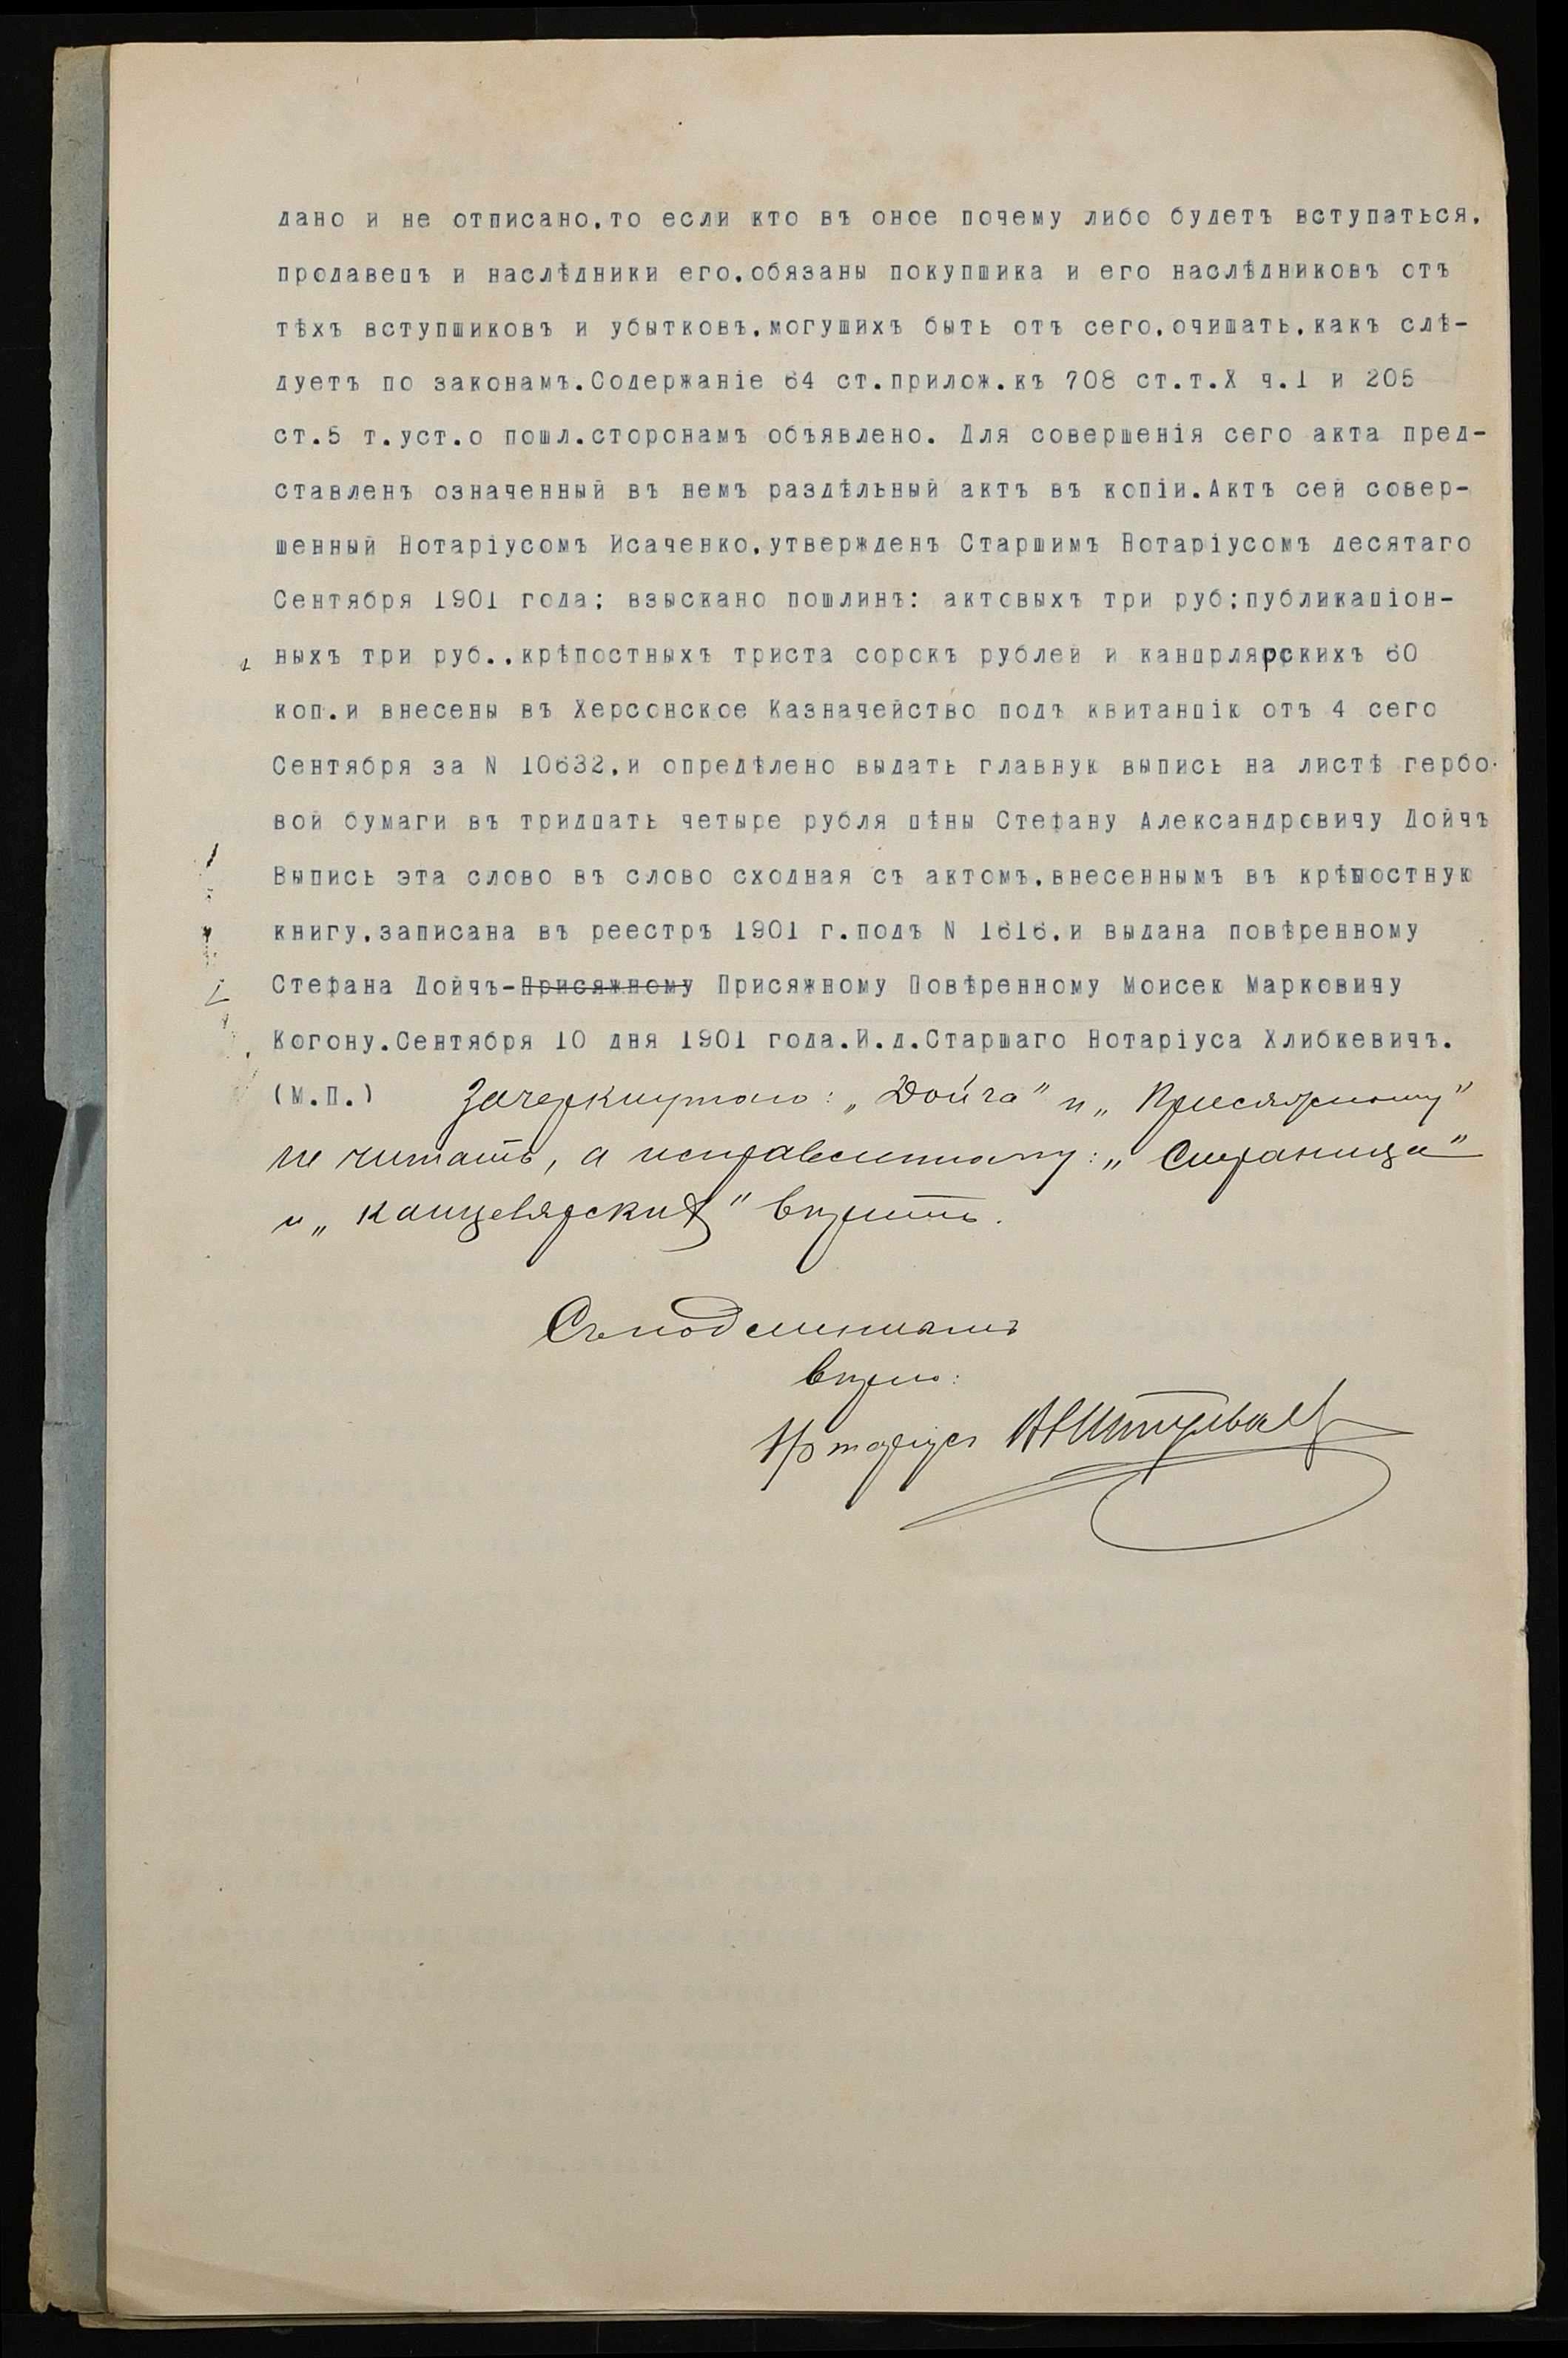 дано и не отписано,то если кто въ оное почему либо будетъ вступаться,
продавецъ и наслѣдники его,обязаны покупщика и его наслѣдниковъ отъ
тѣхъ вступщиковъ и убытковъ,могущихъ быть отъ сего,очищать,какъ слѣ-
дуетъ по законамъ.Содержаніе 64 ст.прилож.къ 708 ст.т.X ч.1 и 205
ст.5 т.уст.о пошл.сторонамъ объявлено. Для совершенія сего акта пред-
ставленъ означенный въ немъ раздѣльный актъ въ копіи.Актъ сей совер-
шенный Нотаріусомъ Исаченко,утвержденъ Старшимъ Нотаріусомъ десятаго
Сентября 1901 года; взыскано пошлинъ: актовыхъ три руб;публикаціон-
ныхъ три руб.,крѣпостныхъ триста сорокъ рублей и канцрлярскихъ 60
коп.и внесены въ Херсонское Казначейство подъ квитанцію отъ 4 сего
Сентября за N 10632,и опредѣлено выдать главную выпись на листѣ гербо-
вой бумаги въ тридцать четыре рубля цѣны Стефану Александровичу Дойчъ
Выпись эта слово въ слово сходная съ актомъ,внесеннымъ въ крѣпостную
книгу,записана въ реестръ 1901 г.подъ N 1616,и выдана повѣренному
Стефана Дойчъ-Присяжному Присяжному Повѣренному Моисею Марковичу
Когону.Сентября 10 дня 1901 года.И.д.Старшаго Нотаріуса Хлибкевичъ.
(М.П.) Зачеркнутаго: „Дойча" и „Присяжному"
не читать, а исправленному: „Страница"
и „канцелярскихъ" вѣрить.
Съ подлиннымъ
вѣрно:
Нотаріусъ